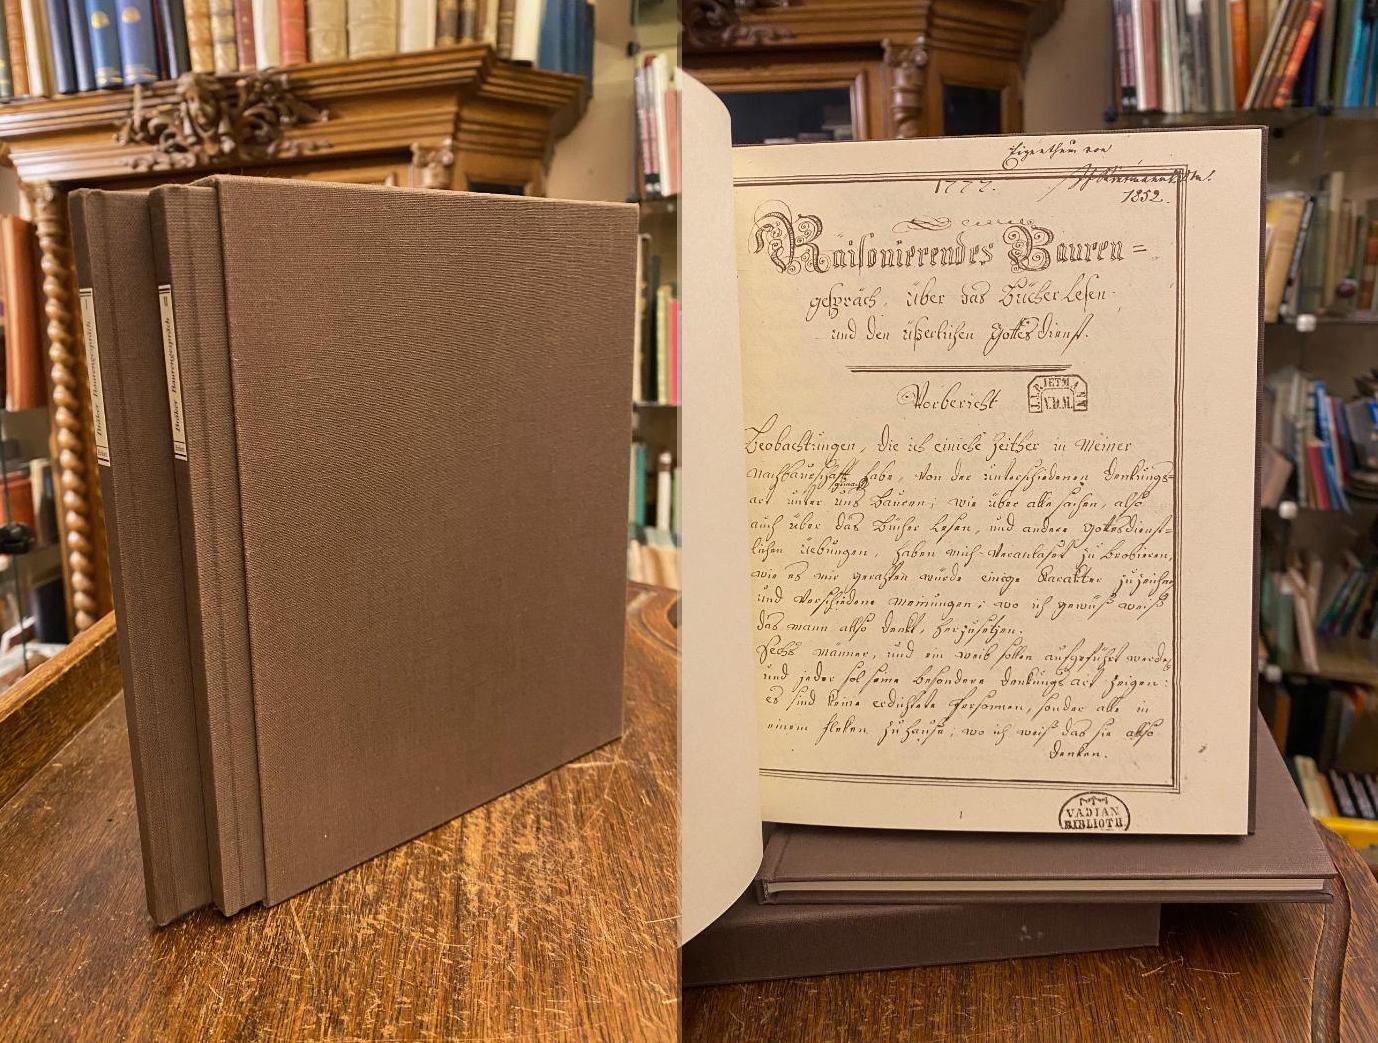 I
Bräker Baurengespräch
II
Bräker Baurengespräch
Eigenthum von
1777.
1852.
Räisonierendes Bauren=
gespräch, über das Bücherlesen
und den üßerlichen Gottesdienst.
Vorbericht
J.L.P. IETMANN
V.D.M.
Beobachtungen, die ich einiche zeither in Meiner
nachbaurschafft habe, von der unterschiedenen denkungs=
gemacht
art unter uns bauren; wie über alle sachen, also
auch über das Bücher lesen, und andere gottesdienst=
lichen üebungen, haben mich veranlaset zu brobieren,
wie es mir gerahten würde einige karakter zu zeichen
und verschiedene meinungen; wo ich gewüß weiß
das mann allso denkt, herzusetzen.
Sechs männer, und ein weib sollen aufgeführt werde
und jeder sol seine besondere denkungs art zeigen:
es sind keine erdichtete personnen, sonder alle in
einem fleken zuhause; wo ich weiß das sie allso
denken.
1
VADIAN
BIBLIOTH.